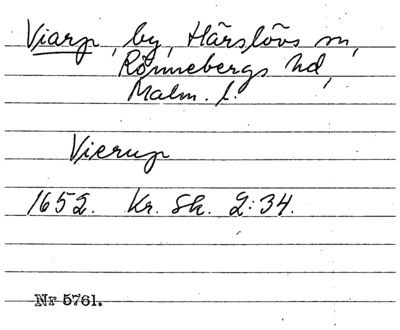 Viarp, by, Härslövs sn,
Rönnebergs hd,
Malm. l.
Vierup
1652. Kr. Sk. 2:34.
Nr 5761.